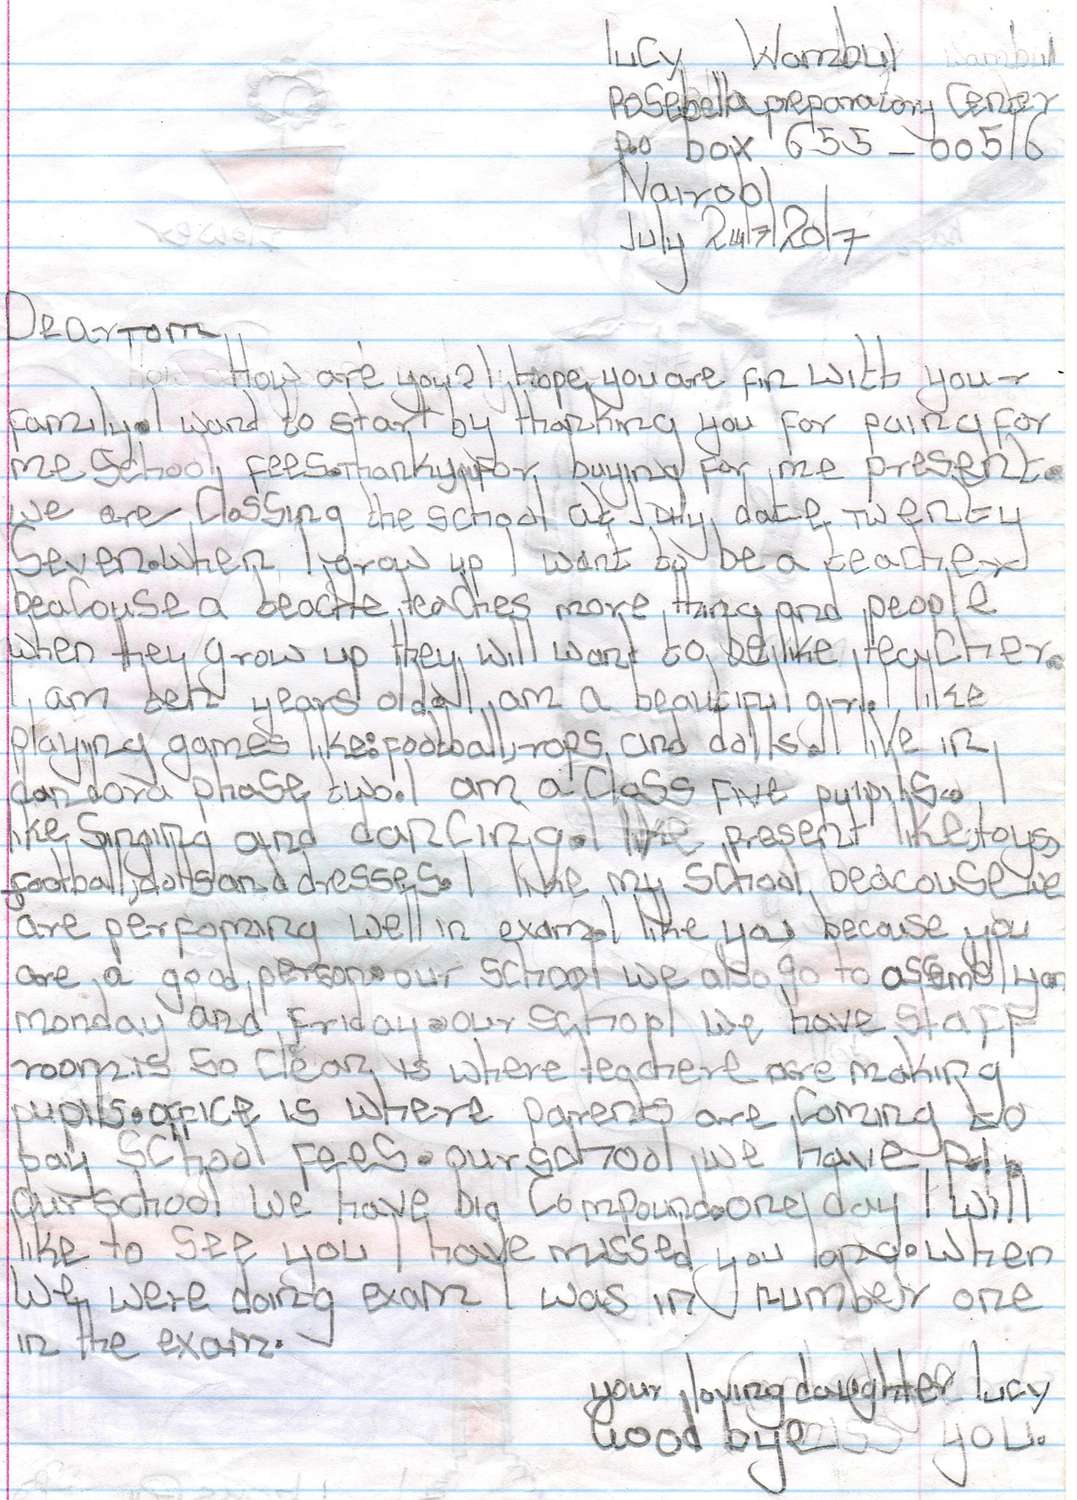 Lucy Wambui
Rosebella preparatory Center
p.o box 655 - 00516
Nairobi
July 24/7/2017
Dear Tom
How are you? I hope you are fin with your
family. I want to start by thanking you for paing for
me school fees. thank you for buying for me present.
we are classing the school at July date twenty
Seven. when I grow up I want to be a teacher
beacouse a teache teaches more thing and people
when they grow up they will want to be like teacher.
I am ten years old. I am a beautiful girl. I like
playing games like: football, rops and dolls. I live in
dandora phase two. I am a class five pulpils. I
like singing and dancing. I like present like, toys,
football, dolls and dresses. I like my school beacouse we
are perfoming well in exam. I like you because you
are a good person. our school we also go to assembly on
monday and friday. our school we have staff
room. is so clean is where teachere are making
pupils. office is where parents are coming to
pay school fees. our school we have p.l.
our school we have big compound. one day I will
like to see you I have missed you long. when
we were doing exam I was in number one
in the exam.
your loving daughter Lucy
Good bye miss you.
flower